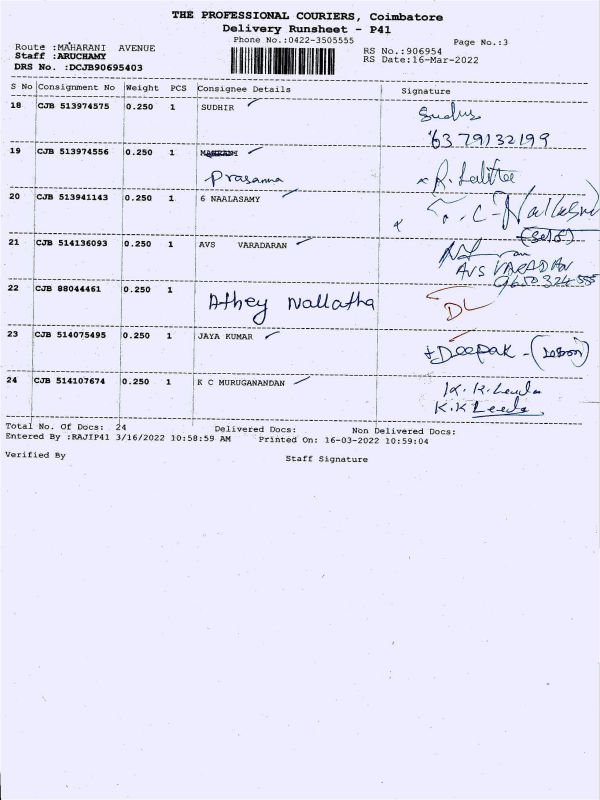 THE PROFESSIONAL COURIERS, Coimbatore
Delivery Runsheet - P41
Phone No.:0422-3505555
Page No.:3
Route :MAHARANI AVENUE
RS No.:906954
Staff :ARUCHAMY
RS Date:16-Mar-2022
DRS No. :DCJB90695403
S No Consignment No Weight PCS Consignee Details Signature
18 CJB 513974575 0.250 1 SUDHIR
6379132199
19 CJB 513974556 0.250 1
Prasanna
R. Lalitha
20 CJB 513941143 0.250 1 G NAALASAMY
(Self)
21 CJB 514136093 0.250 1 AVS VARADARAN
AVS VARADAN
9650324555
22 CJB 88044461 0.250 1
Athey Nallatha DL
23 CJB 514075495 0.250 1 JAYA KUMAR
Deepak
24 CJB 514107674 0.250 1 K C MURUGANANDAN
K.K.Leela
K.K Leela
Total No. Of Docs: 24 Delivered Docs: Non Delivered Docs:
Entered By :RAJIP41 3/16/2022 10:58:59 AM Printed On: 16-03-2022 10:59:04
Verified By
Staff Signature